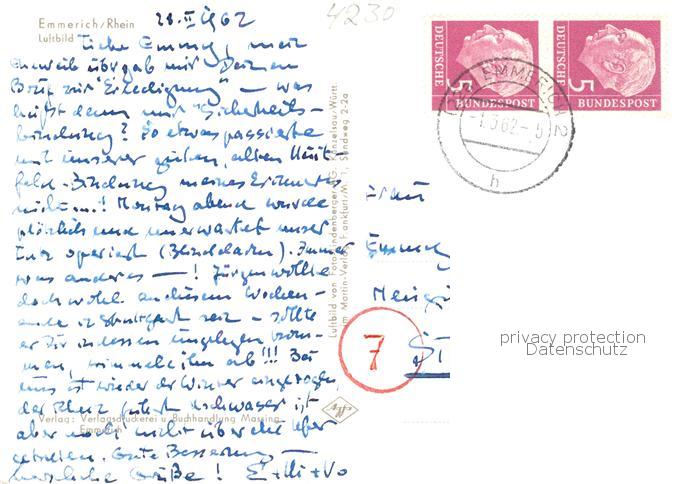 4230
Emmerich/Rhein
Luftbild
28. II 1962
Liebe Emmy, mein
Eheweib übergab mir Deinen
Brief mit "Erledigung" – was
heißt denn mit "Sicherheits-
bindung"? So etwas passierte
mit unserer guten, alten
feld-Bindung meines Erachtens
nicht...! Montag abend wurde
plötzlich und unerwartet unser
operiert (Blinddarm). Immer
was anderes — ! Jürgen wollte
doch wohl an diesem Wochen-
ende in Stuttgart sein – sollte
er Dir indessen ungelegen kom-
men, wimmele ihn ab!!! Bei
uns ist wieder der Winter eingezogen,
der Rhein führt Hochwasser, ist
aber noch nicht über die Ufer
getreten. Gute Besserung —
herzliche Grüße! E + Mi + Vo
Verlag: Verlagsdruckerei u. Buchhandlung Massing
Emmerich
Luftbild von Foto Lindenberger AG, Künzelsau/Württ.
im Martin-Verlag, Frankfurt/M. 1, Sandweg 2-2a
DEUTSCHE BUNDESPOST 5
DEUTSCHE BUNDESPOST 5
EMMERICH 2
-1.3.62.-
h
Frau
Emmy
7
St
privacy protection
Datenschutz